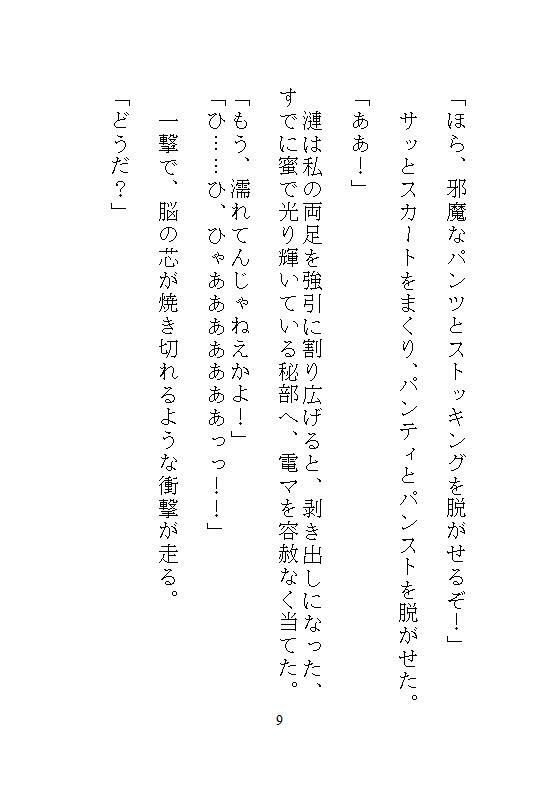 「ほら、邪魔なパンツとストッキングを脱がせるぞ！」
サッとスカートをまくり、パンティとパンストを脱がせた。
「ああ！」
漣は私の両足を強引に割り広げると、剥き出しになった、
すでに蜜で光り輝いている秘部へ、電マを容赦なく当てた。
「もう、濡れてんじゃねえかよ！」
「ひ……ひ、ひゃあああああああっっ！！」
一撃で、脳の芯が焼き切れるような衝撃が走る。
「どうだ？」
9